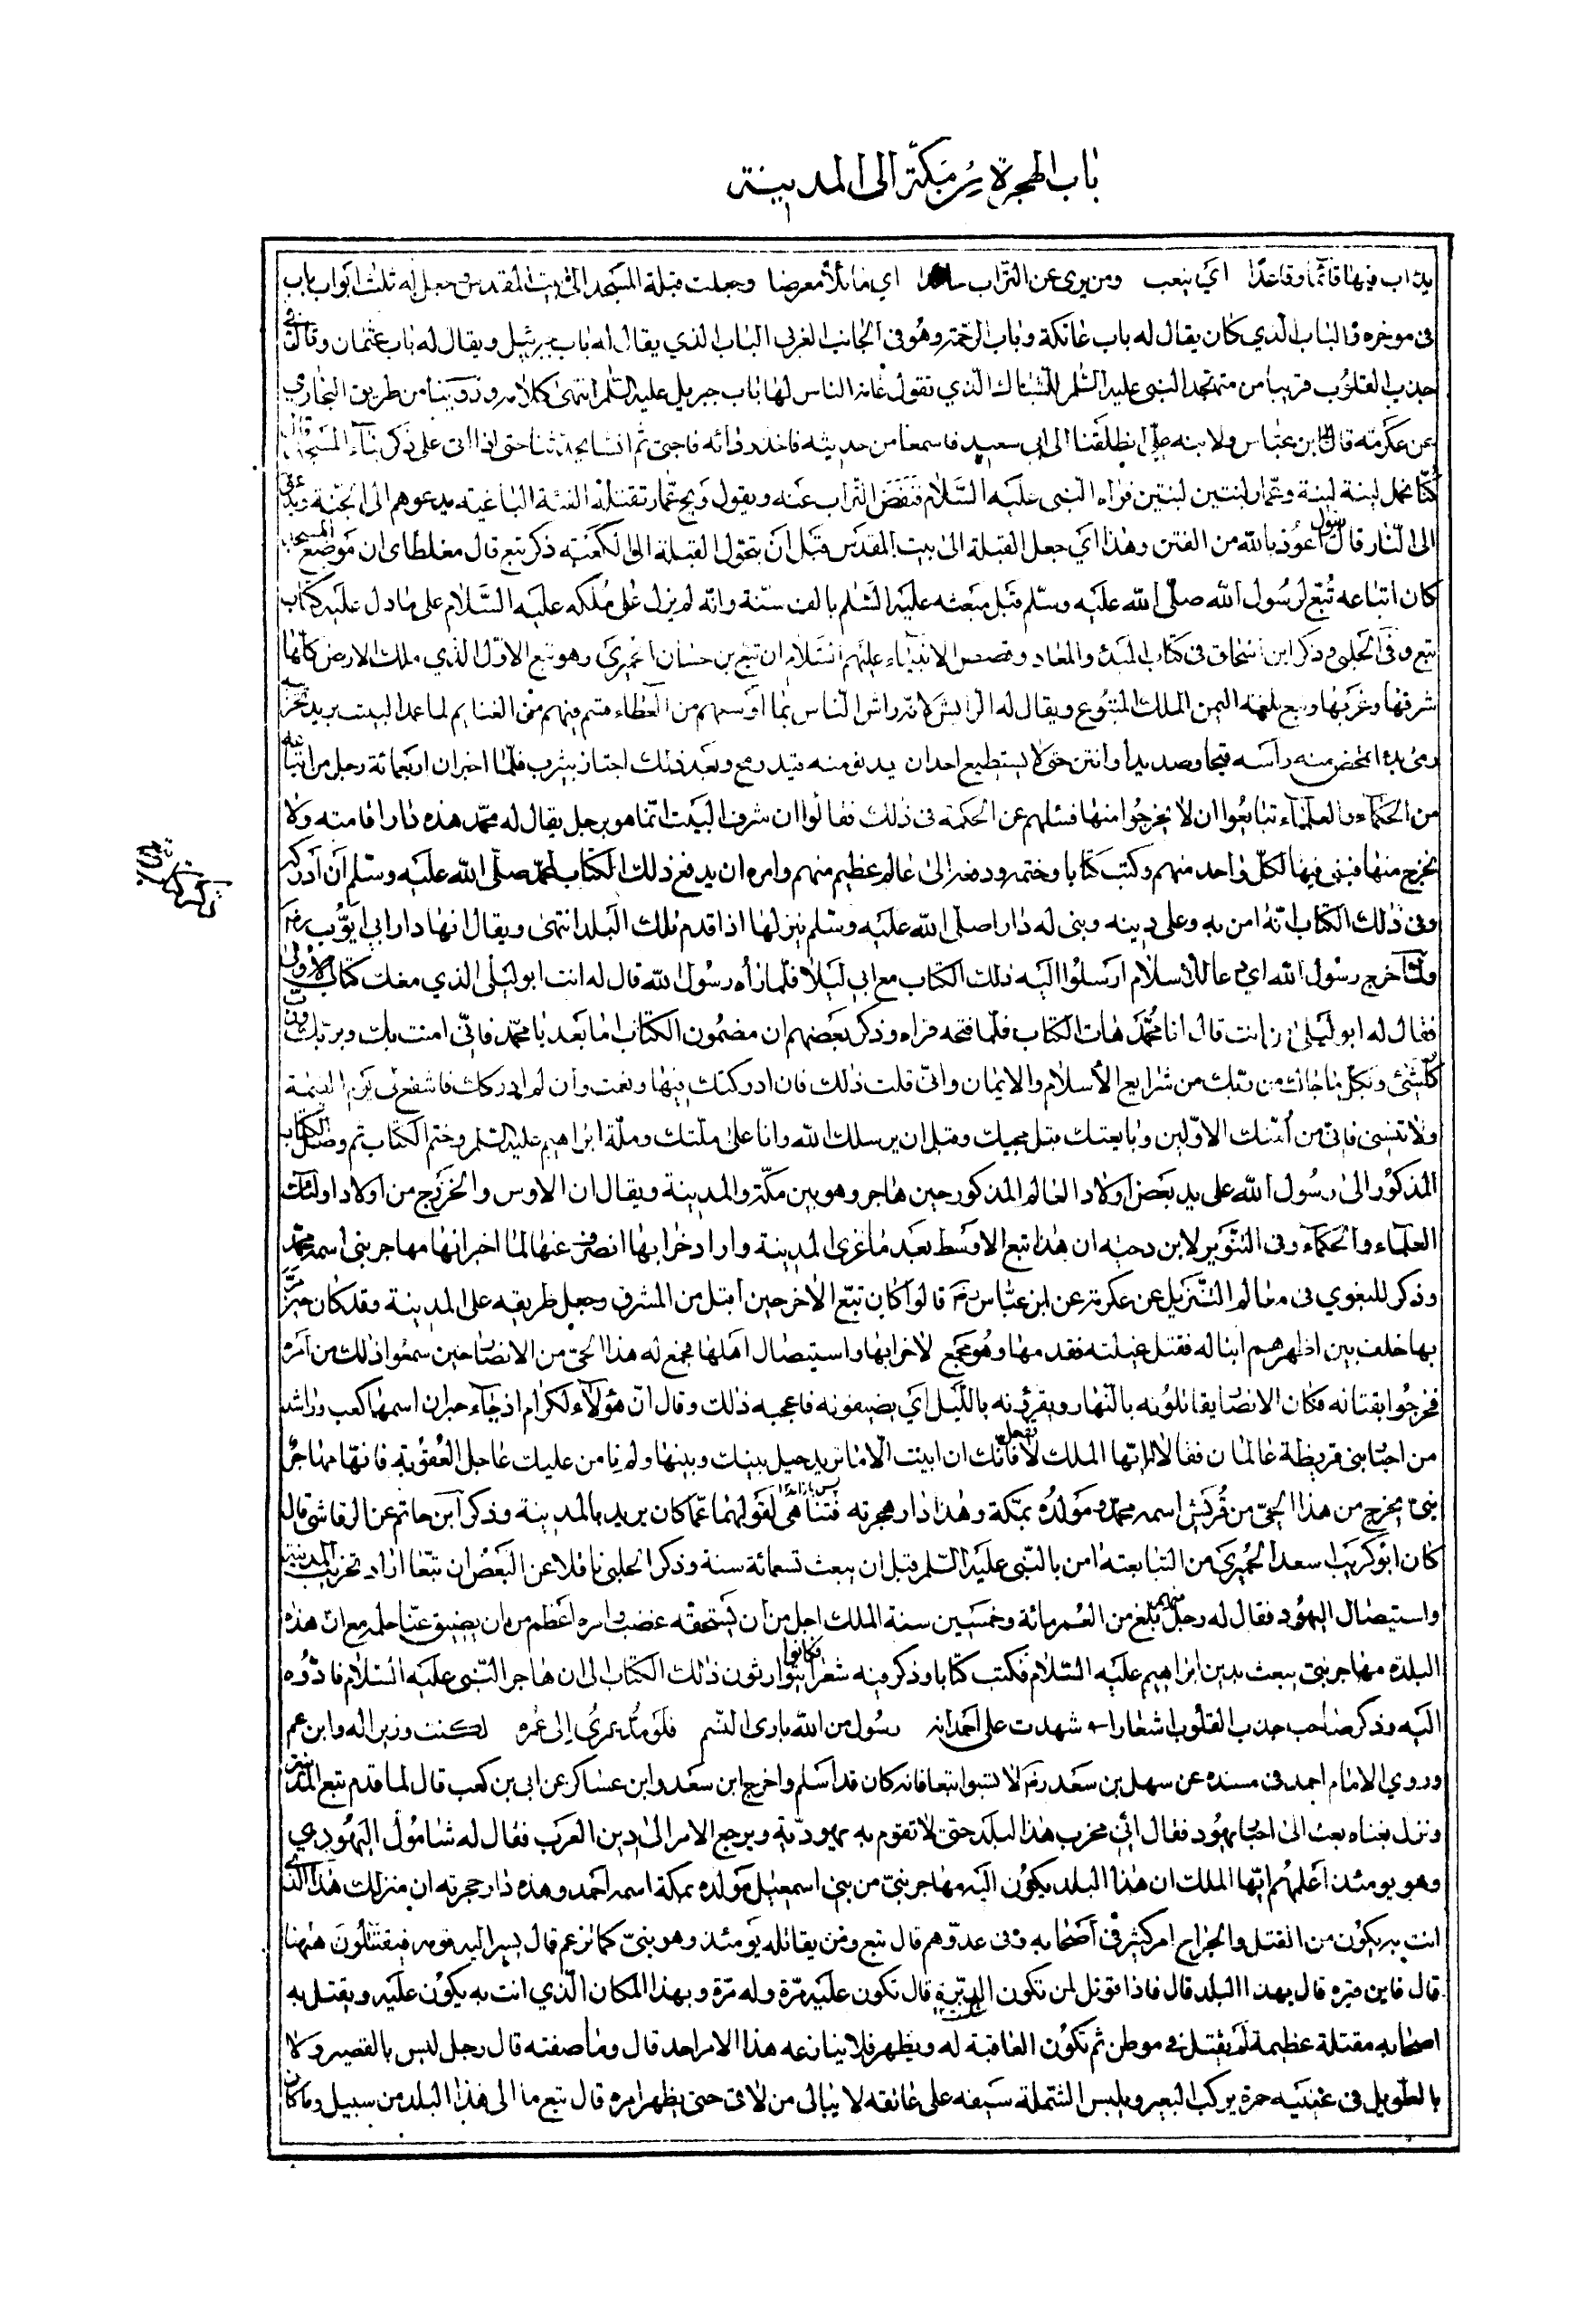 باب الهجرة من مكة الى المدينة
يدأب فيها قائما وقاعدا اي يتعب ومن يرى عن التراب حائدا اي مائلا معرضا وجعلت قبلة المسجد الى بيت المقدس وجعل له ثلث ابواب باب
في موخره والباب الذي كان يقال له باب عاتكة وباب الرحمة وهو في الجانب الغربي الباب الذي يقال له باب جبرئيل ويقال له باب عثمان وقال في
جذب القلوب قريبا من متهجد النبي عليه السلم للشباك الذي تقول عامة الناس لها باب جبريل عليه السلم انتهى كلامه وروينا من طريق البخاري
عن عكرمة قال قال ابن عباس ولابنه علي انطلقنا الى ابي سعيد فاسمعا من حديثه فاخذ ردائه فاحتبى ثم انشا يحدثنا حتى اذا اتى على ذكر بناء المسجد قال
كنا نحمل لبنة لبنة وعمار لبنتين لبنتين فراه النبي عليه السلام فنفض التراب عنه ويقول ويح عمار تقتله الفئة الباغية يدعوهم الى الجنة ويدعونه
الى النار قال يقول اعوذ بالله من الفتن وهذا اي جعل القبلة الى بيت المقدس قبل ان يتحول القبلة الى الكعبة ذكر تبع قال مغلطاى ان موضع المسجد
كان ابتاعه تبع لرسول الله صلى الله عليه وسلم قبل مبعثه عليه السلم بالف سنة وانه لم يزل على ملكه عليه السلام على ما دل عليه كتاب
تبع وفي الحلبي وذكر ابن اسحاق في كتاب المبدء والمعاد وقصص الانبياء عليهم السلام ان تبع بن حسان الحميري وهو تبع الاول الذي ملك الارض كلها
شرقها وغربها وتبع بلغة اليمن الملك المتبوع ويقال له الرايش لانه راش الناس بما اوسعهم من العطاء وقسم فيهم من الغنايم لما عمد البيت يريد تخريبه
رمى بداء تمخض منه راسه قيحا وصديدا وانتن حتى لا يستطيع احد ان يدنو منه قيد رمح وبعد ذلك اجتاز بيثرب فلما اخبر ان اربعمائة رجل من اتباعه
من الحكماء والعلماء تبايعوا ان لا يخرجوا منها فسئلهم عن الحكمة في ذلك فقالوا ان شرف البيت انما هو برجل يقال له محمد هذه دار اقامته ولا
يخرج منها فبنى فيها لكل واحد منهم وكتب كتابا وختمه ودفعه الى عالم عظيم منهم وامره ان يدفع ذلك الكتاب لمحمد صلى الله عليه وسلم ان ادركه
وفي ذلك الكتاب انه امن به وعلى دينه وبنى له دارا صلى الله عليه وسلم ينزلها اذا قدم تلك البلد انتهى ويقال انها دار ابي ايوب رضه
ولما خرج رسول الله اي دعا للاسلام ارسلوا اليه ذلك الكتاب مع ابي ليلى فلما رأه رسول الله قال له انت ابو ليلى الذي معك كتاب الاول
فقال له ابو ليلى من انت قال انا محمد هات الكتاب فلما فتحه قراه وذكر بعضهم ان مضمون الكتاب اما بعد يا محمد فاني امنت بك وبربك ورب
كلشئ وبكل ما جاءك من ربك من شرايع الاسلام والايمان واني قلت ذلك فان ادركتك فبها ونعمت وان لم ادركك فاشفع لي يوم القيمة
ولا تنسني فاني من امتك الاولين وبايعتك قبل مجيك وقبل ان يرسلك الله وانا على ملتك وملة ابراهيم عليه السلم وختم الكتاب ثم وصل الكتاب
المذكور الى رسول الله على يد بعض اولاد العالم المذكور حين هاجر وهو بين مكة والمدينة ويقال ان الاوس والخزرج من اولاد اولئك
العلماء والحكماء وفي التنوير لابن دحيه ان هذا تبع الاوسط بعد ما غزى المدينة واراد خرابها انصرف عنها لما اخبر انها مهاجر نبي اسمه محمد
وذكر للبغوي في معالم التنزيل عن عكرمة عن ابن عباس رضه قالوا كان تبع الاخر حين اقبل من المشرق وجعل طريقه على المدينة وقد كان حين مر
بها خلف بين اظهرهم ابنا له فقتل غيلة فقدمها وهو مجمع لاخرابها واستيصال اهلها فجمع له هذا الحي من الانصار حين سمعوا ذلك من امره
فخرجوا بقتاله فكان الانصار يقاتلونه بالنهار ويقرونه بالليل اي يضيفونه فاعجبه ذلك وقال ان هؤلاء لكرام اذ جاء حبران اسمها كعب وراشد
من احبار بني قريظة عالمان فقالا ايها الملك لا تفعل فانك ان ابيت الا ما تريد حيل بينك وبينها ولم نامن عليك عاجل العقوبة فانها مهاجر
نبي يخرج من هذا الحي من قريش اسمه محمد ومولده بمكة وهذا دار هجرته فتناهى لقولهما عما كان يريد بالمدينة وذكر ابن حاتم عن الرقاشي قال
كان ابو كريب اسعد الحميري من التبابعة امن بالنبي عليه السلم قبل ان يبعث تسعمائة سنة وذكر الحلبي ناقلا عن البعض ان تبعا اراد تخريب المدينة
واستيصال اليهود فقال له رجل منهم بلغ من العمر مائة وخمسين سنة الملك اجل من ان يستخفه غضب وامره اعظم من ان يضيق عنا حلمه مع ان هذه
البلدة مهاجر نبي يبعث بدين ابراهيم عليه السلام فكتب كتابا وذكر فيه شعرا فكانوا يتوارثون ذلك الكتاب الى ان هاجر النبي عليه السلام فادوه
اليه وذكر صاحب جذب القلوب اشعاره شهدت على احمد انه رسول من الله بارى النسم فلو مد عمري الى عمره لكنت وزيرا له وابن عم
وروى الامام احمد في مسنده عن سهل بن سعد رضه لا تسبوا تبعا فانه كان قد اسلم واخرج ابن سعد وابن عساكر عن ابي بن كعب قال لما قدم تبع المدينة
ونزل بفناه بعث الى احبار يهود فقال اني مخرب هذا البلد حتى لا تقوم به يهودية ويرجع الامر الى دين العرب فقال له شامول اليهودي
وهو يومئذ اعلمهم ايها الملك ان هذا البلد يكون اليه مهاجر نبي من بني اسمعيل مولده بمكة اسمه احمد وهذه دار هجرته ان منزلك هذا الذي
انت به يكون من القتل والجراح امر كثير في اصحابه وفي عدوهم قال تبع ومن يقاتله يومئذ وهو نبي كما تزعم قال يسير اليه قومه فيقتتلون ههنا
قال فاين قبره قال بهذا البلد قال فاذا قوتل لمن تكون الدبرة قال تكون عليه مرة وله مرة وبهذا المكان الذي انت به يكون عليه ويقتل به
اصحابه مقتلة عظيمة لم يقتل في موطن ثم تكون العاقبة له ويظهر فلا ينازعه هذا الامر احد قال وما صفته قال رجل ليس بالقصير ولا
بالطويل في عينيه حمرة يركب البعير ويلبس الشملة سيفه على عاتقه لا يبالى من لاقى حتى يظهر امره قال تبع ما الى هذا البلد من سبيل وما كان